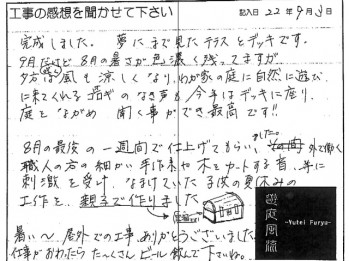 工事の感想を聞かせて下さい
記入日 22年9月3日
完成しました。夢にまで見たテラスとデッキです。
9月だけど 8月の暑さが色濃く残ってますが
夕方は風も涼しくなり、わが家の庭に自然に遊び
に来てくれる のなき声も 今年はデッキに座り、
庭をながめ 聞く事ができ最高です!!
8月の最後の一週間で仕上げてもらい、 外で働く
職人の方の細かい手作業や木をカットする音、 に
刺激を受け、なまけていた子供の夏休みの
工作を、親子で作りました
暑い〜屋外での工事 ありがとうございました
仕事がおわったら たーくさん ビール飲んで下さいね。
遊庭風流
-Yutei Furyu-